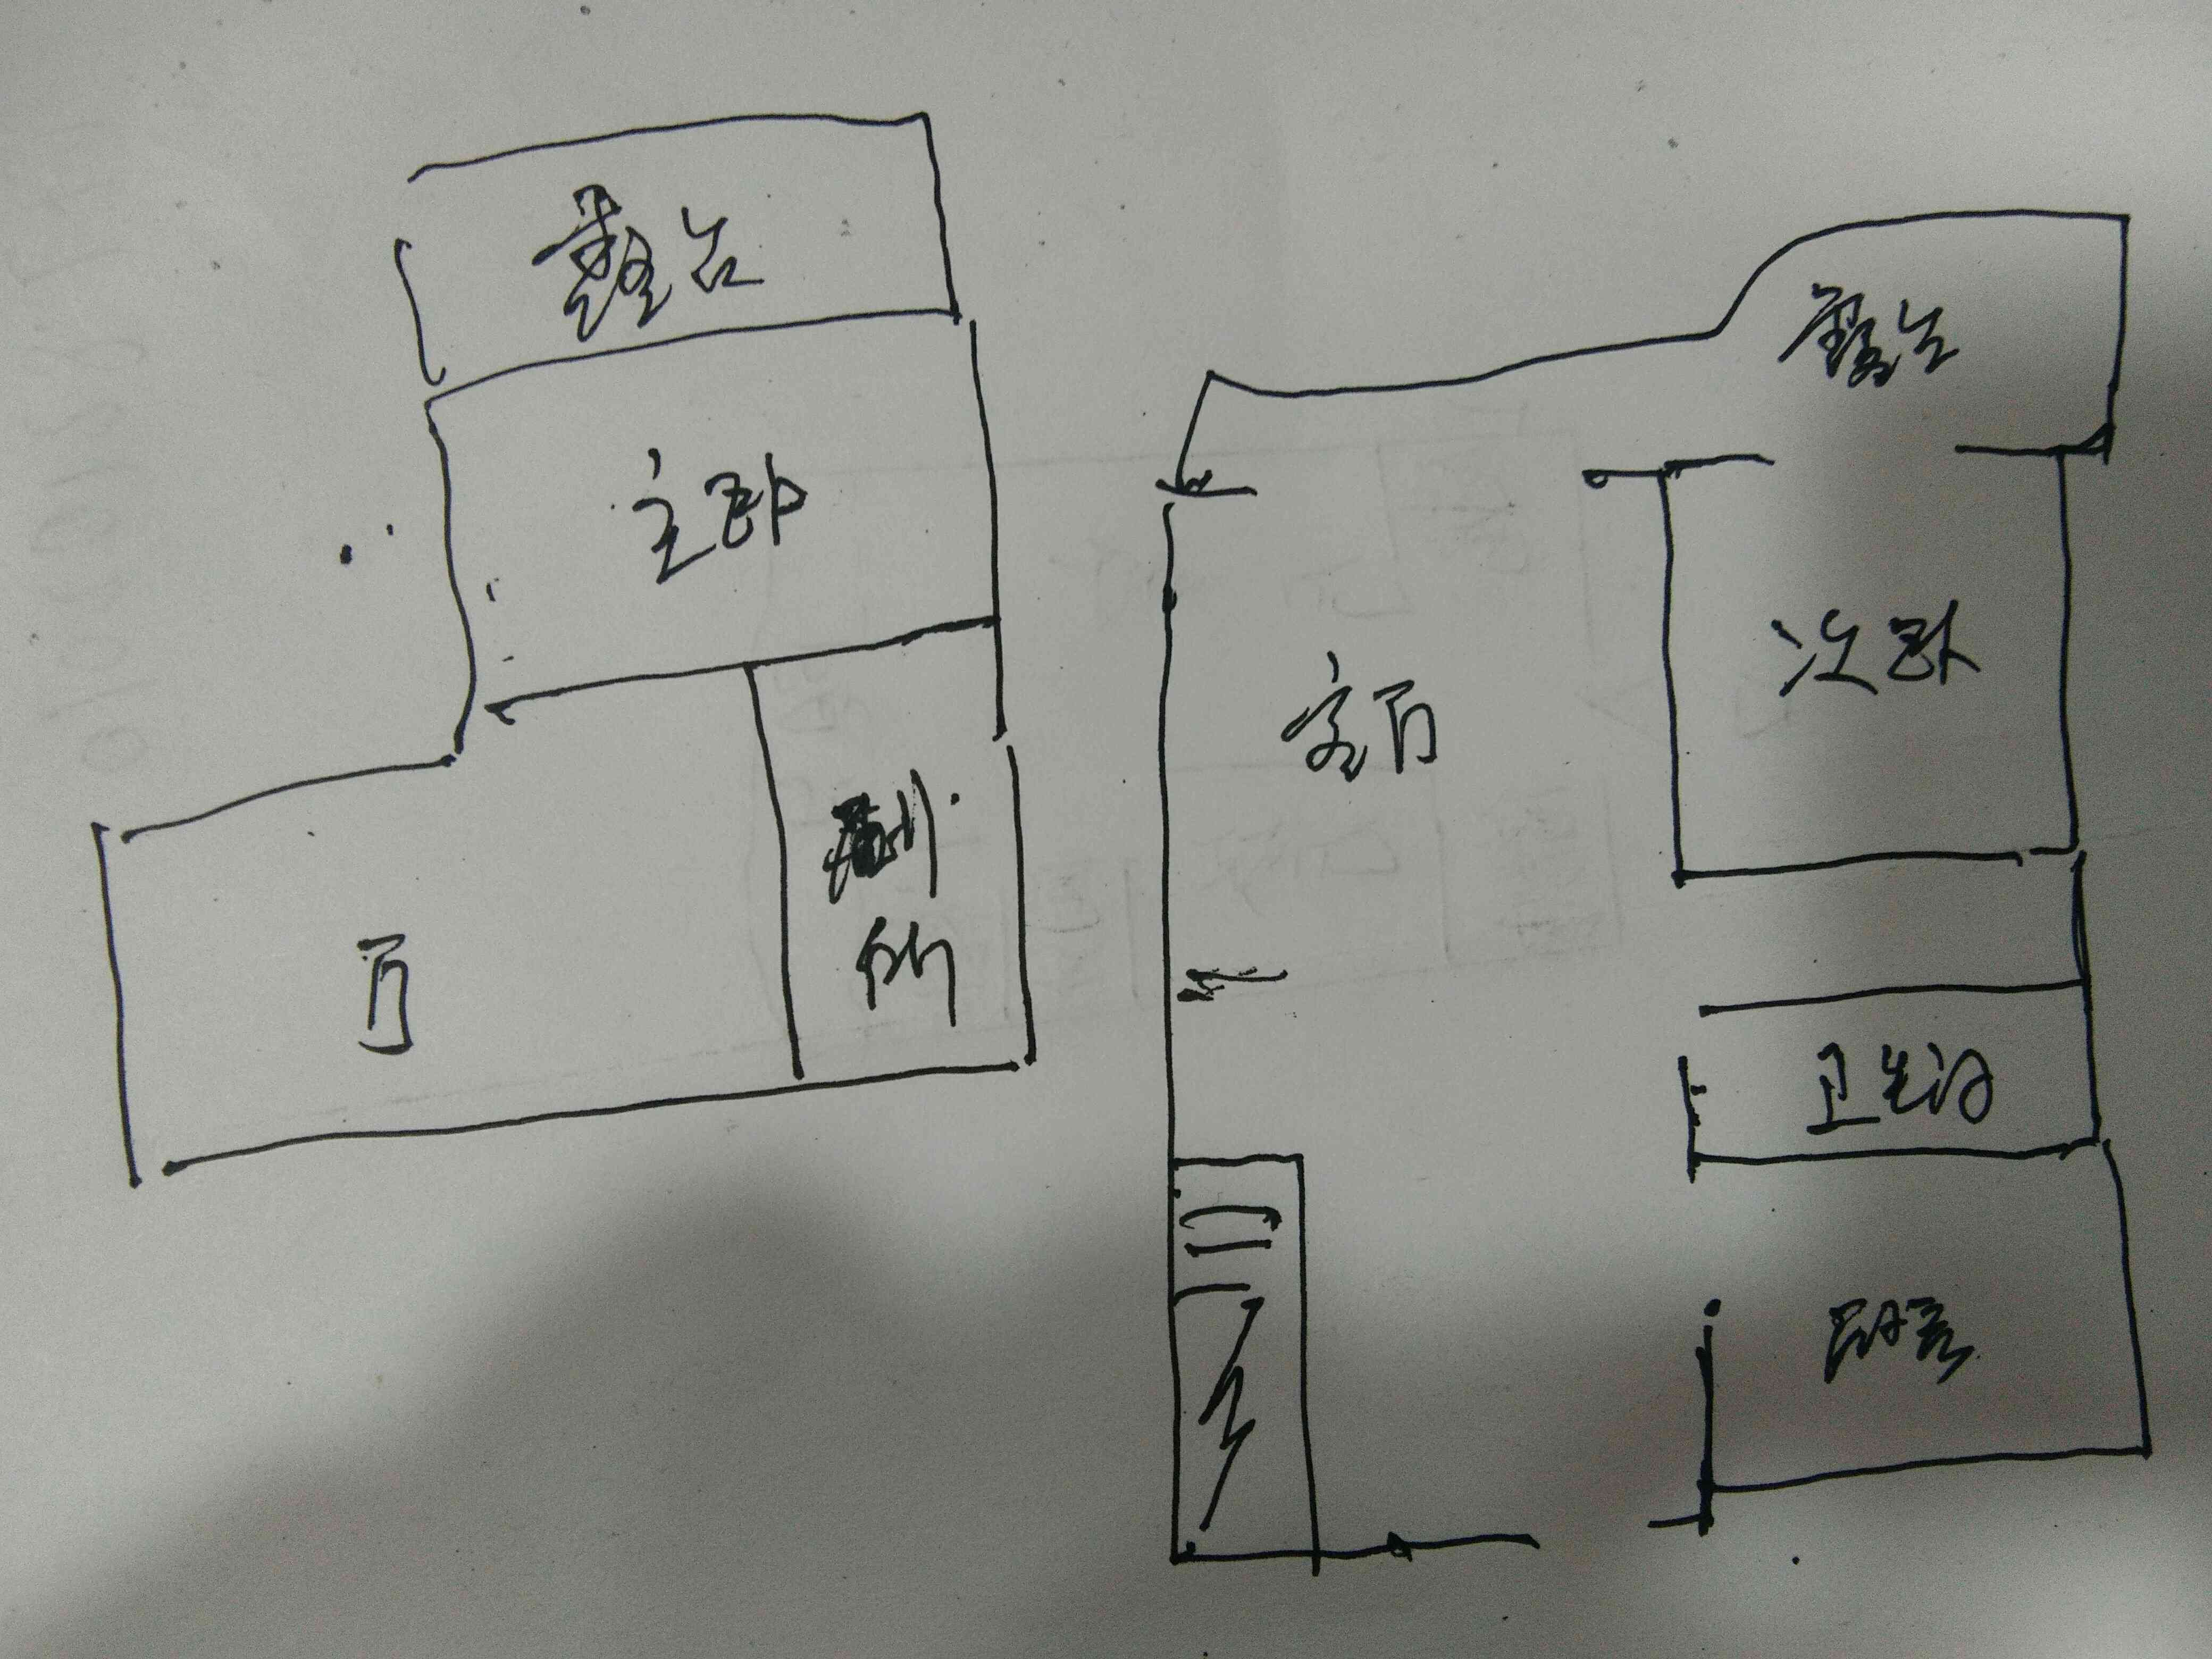 露台
主卧
厕
所
厅
露台
次卧
客厅
卫生间